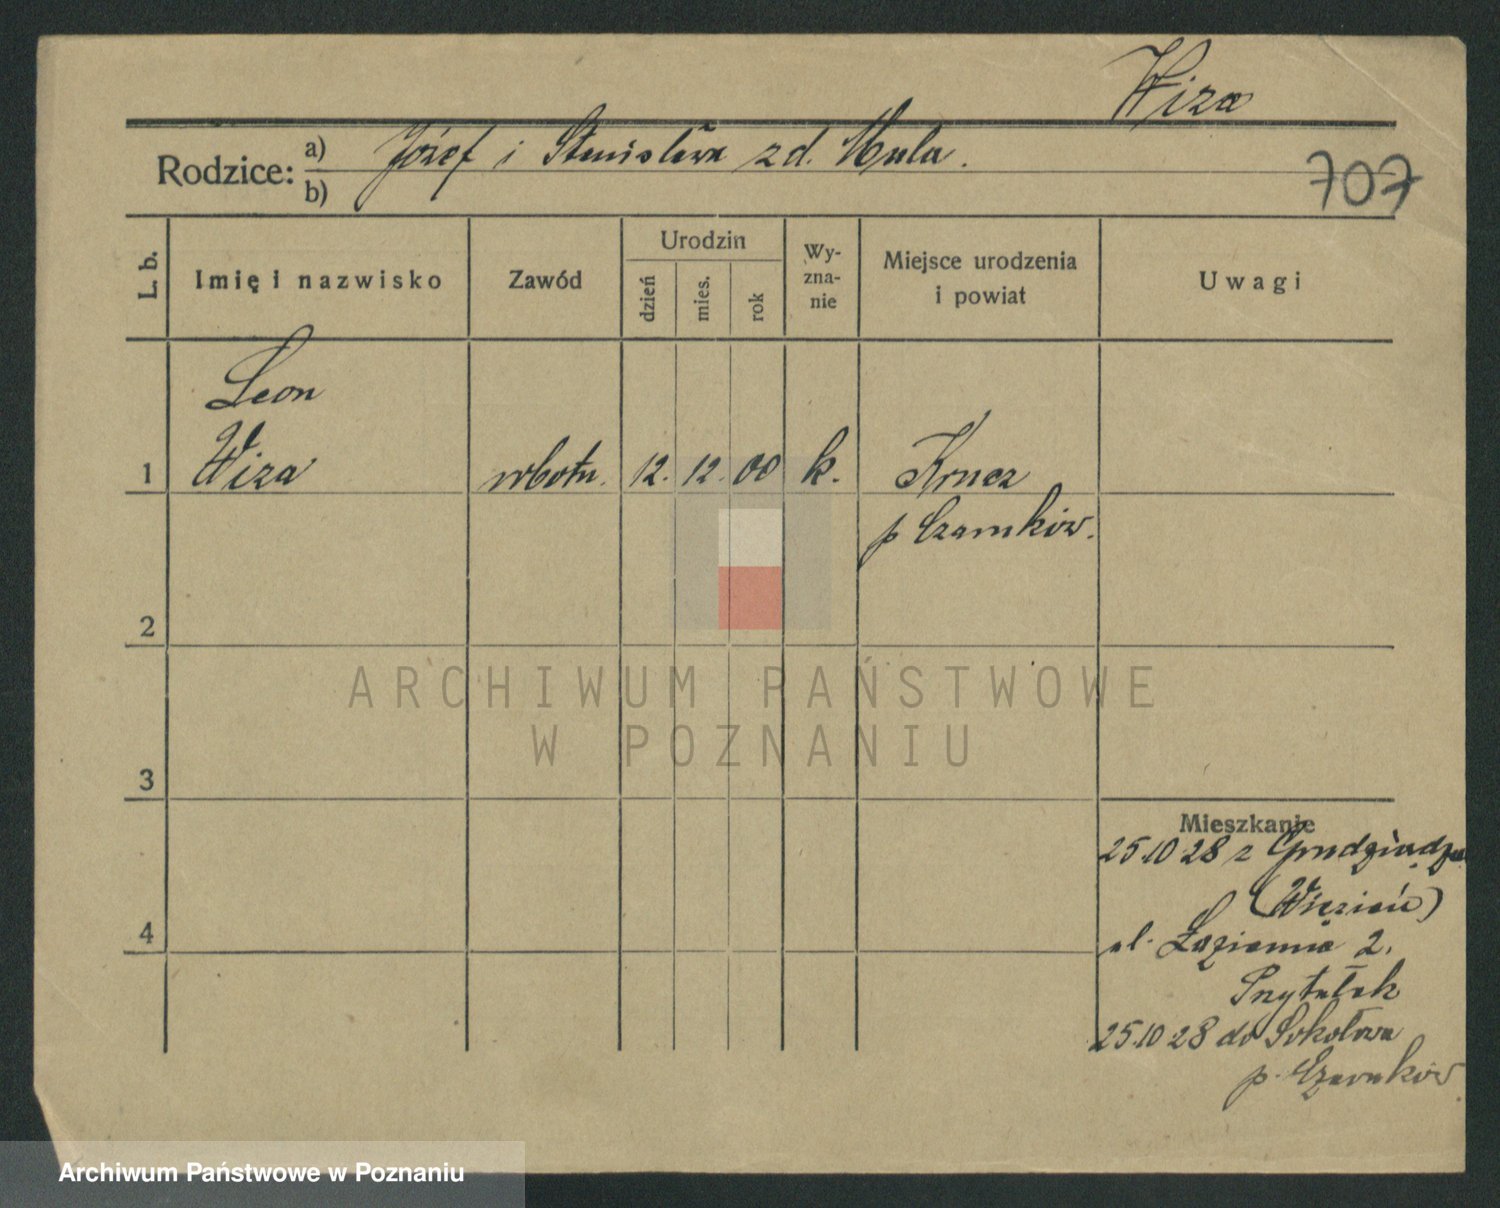 Wiza
Rodzice: a) Józef i Stanisława z d. Mula.
b)
707
L. b.
Imię i nazwisko
Zawód
Urodzin
dzień
mies.
rok
Wy-
zna-
nie
Miejsce urodzenia
i powiat
Uwagi
Leon
1 Wiza robotn. 12. 12. 00 k. Krucz
p Czarnków.
2
ARCHIWUM PAŃSTWOWE
W POZNANIU
3
Mieszkanie
25.10 28 z Grudziądza
(Więzień)
4
ul. Łazienna 2.
Przytułek
25.10 28 do Sokołowa
p. Czarnków
Archiwum Państwowe w Poznaniu